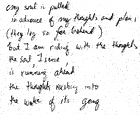 my soul is pulled
in advance of my thoughts and plans,
(they lag so far behind)
but I am riding with the thoughts
the soul, I sense,
is running ahead
the thoughts rushing into
the wake of its going